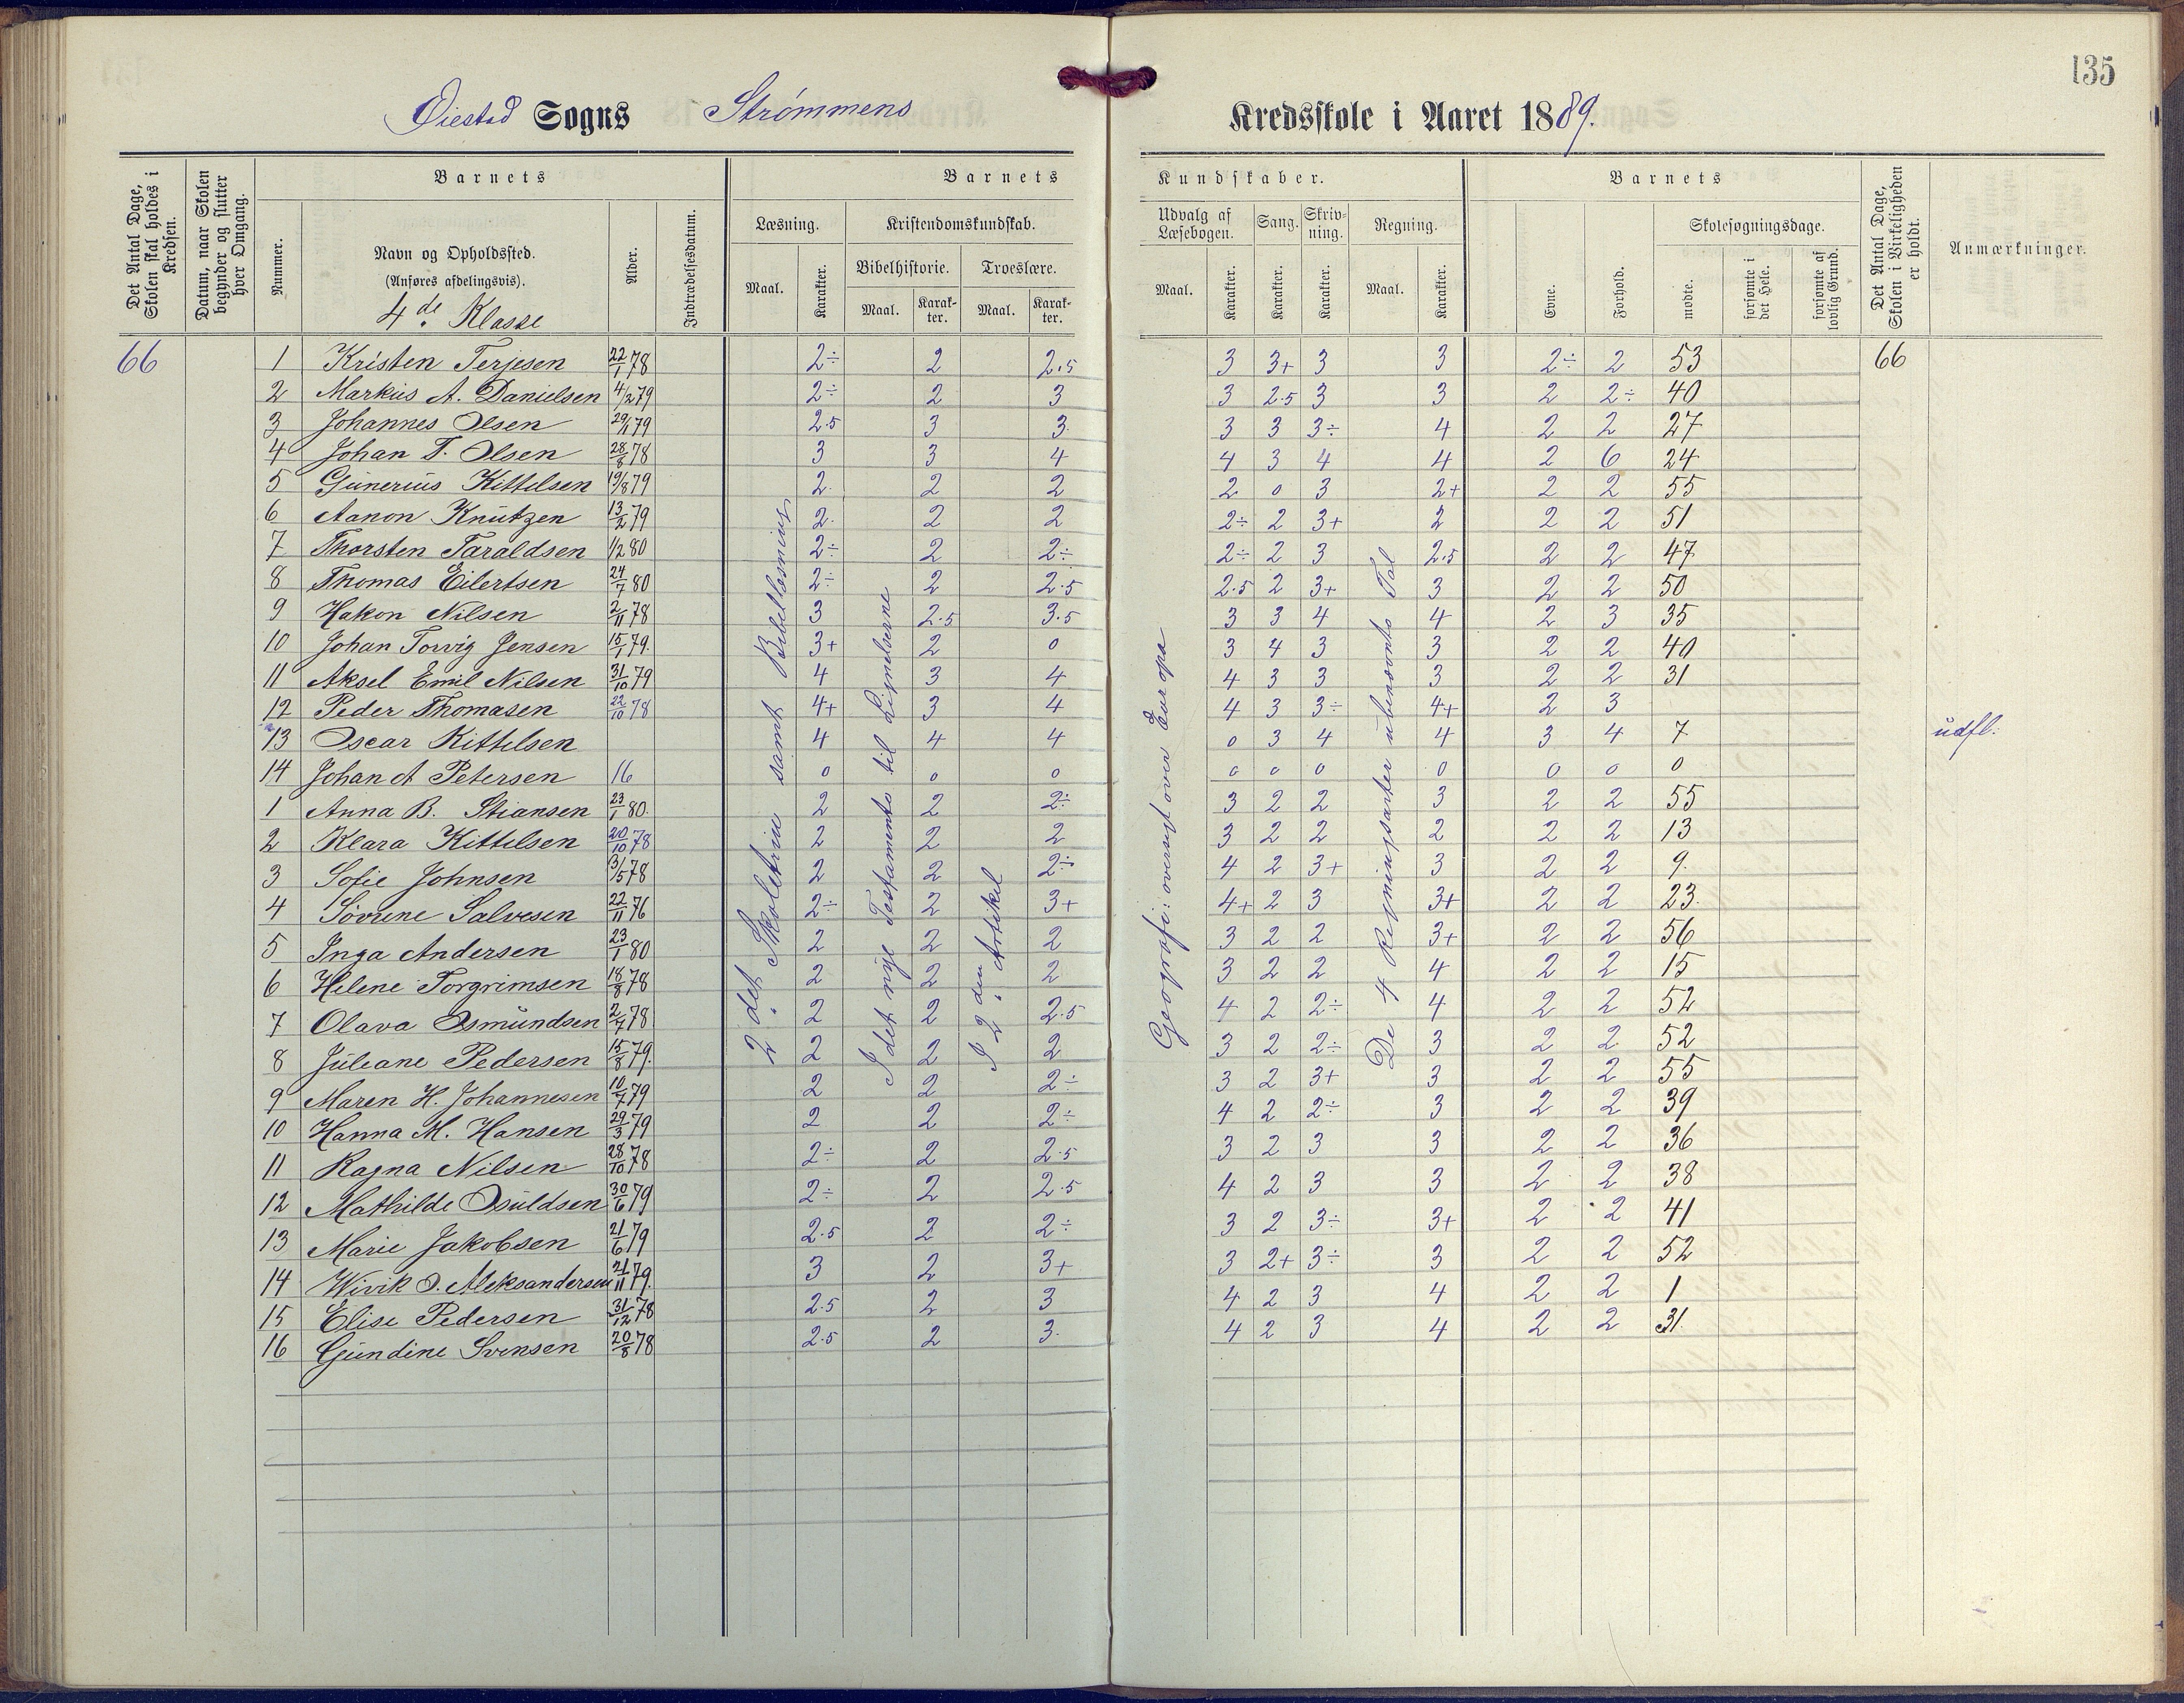 135
Øiestad Sogns Strømmens Kredsskole i Aaret 1889.
Det Antal Dage, Skolen skal holdes i Kredsen.
Datum, naar Skolen begynder og slutter hver Omgang.
Barnets
Nummer.
Navn og Opholdssted.
(Anføres afdelingsvis).
4de Klasse
Alder.
Indtrædelsesdatum.
Barnets Kundskaber.
Læsning.
Maal.
Karakter.
Kristendomskundskab.
Bibelhistorie.
Maal.
Karakter.
Troeslære.
Maal.
Karakter.
Udvalg af Læsebogen.
Maal.
Karakter.
Sang.
Karakter.
Skrivning.
Karakter.
Regning.
Maal.
Karakter.
Barnets
Evne.
Forhold.
Skolesøgningsdage.
mødte.
forsømte i det Hele.
forsømte af lovlig Grund.
Det Antal Dage, Skolen i Virkeligheden er holdt.
Anmærkninger.
2det Skoletrin samt Bibellæsning
I det nye Testamente til Lignelserne
I 2den Artikel
Geografi: oversigt over Europa
De 4 Regningsarter ubenævnte Tal
66 1 Kristen Terjesen 22/1 78 2÷ 2 2.5 3 3+ 3 3 2÷ 2 53 66
2 Markus A. Danielsen 4/2 79 2÷ 2 3 3 2.5 3 3 2 2÷ 40
3 Johannes Olsen 29/11 79 2.5 3 3 3 3 3÷ 4 2 2 27
4 Johan T. Olsen 28/8 78 3 3 4 4 3 4 4 2 6 24
5 Gunerius Kittelsen 19/8 79 2 2 2 2 0 3 2+ 2 2 55
6 Aanon Knutzen 13/2 79 2 2 2 2÷ 2 3+ 2 2 2 51
7 Thorsten Taraldsen 1/2 80 2÷ 2 2÷ 2÷ 2 3 2.5 2 2 47
8 Thomas Eilertsen 24/7 80 2÷ 2 2.5 2.5 2 3+ 3 2 2 50
9 Hakon Nilsen 2/11 78 3 2.5 3.5 3 3 4 4 2 3 35
10 Johan Torvig Jensen 15/1 79. 3+ 2 0 3 4 3 3 2 2 40
11 Aksel Emil Nilsen 31/10 79 4 3 4 4 3 3 3 2 2 31
12 Peder Thomasen 22/10 78 4+ 3 4 4 3 3÷ 4+ 2 3
13 Oscar Kittelsen 4 4 4 0 3 4 4 3 4 7 udfl.
14 Johan A Petersen 16 0 0 0 0 0 0 0 0 0 0
1 Anna B. Stiansen 23/1 80. 2 2 2÷ 3 2 2 3 2 2 55
2 Klara Kittelsen 20/10 78 2 2 2 3 2 2 2 2 2 13
3 Sofie Johnsen 31/5 78 2 2 2÷ 4 2 3+ 3 2 2 9.
4 Sørine Salvesen 22/11 76 2÷ 2 3+ 4+ 2 3 3+ 2 2 23.
5 Inga Andersen 23/1 80 2 2 2 3 2 2 3+ 2 2 56
6 Helene Torgrimsen 18/8 78 2 2 2 3 2 2 4 2 2 15
7 Olava Osmundsen 2/7 78 2 2 2.5 4 2 2÷ 4 2 2 52
8 Juleane Pedersen 15/8 79. 2 2 2 3 2 2÷ 3 2 2 52
9 Maren H. Johannesen 10/7 79 2 2 2÷ 3 2 3+ 3 2 2 55
10 Hanna M. Hansen 29/3 79 2 2 2÷ 4 2 2÷ 3 2 2 39
11 Ragna Nilsen 28/10 78 2÷ 2 2.5 3 2 3 3 2 2 36
12 Mathilde Osuldsen 30/6 79 2÷ 2 2.5 4 2 3 3 2 2 38
13 Marie Jakobsen 21/6 79 2.5 2 2÷ 3 2 3÷ 3+ 2 2 41
14 Wivik O. Aleksandersen 21/11 79. 3 2 3+ 3 2+ 3÷ 3 2 2 52
15 Elise Pedersen 31/12 78 2.5 2 3 4 2 3 4 2 2 1
16 Gundine Svensen 20/8 78 2.5 2 3. 4 2 3 4 2 2 31.